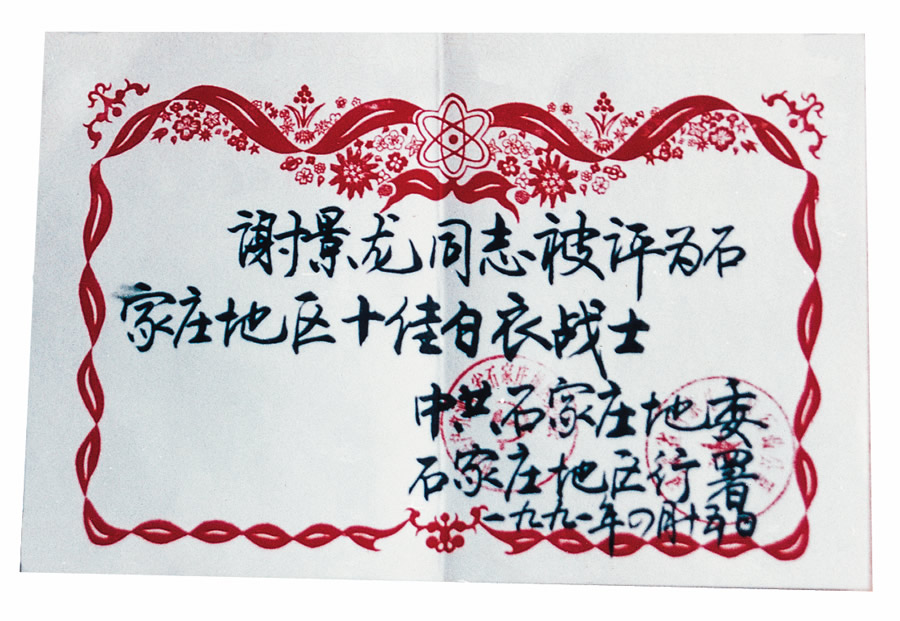 谢景龙同志被评为石
家庄地区十佳白衣战士
中共石家庄地委
石家庄地区行署
一九九一年四月十五日